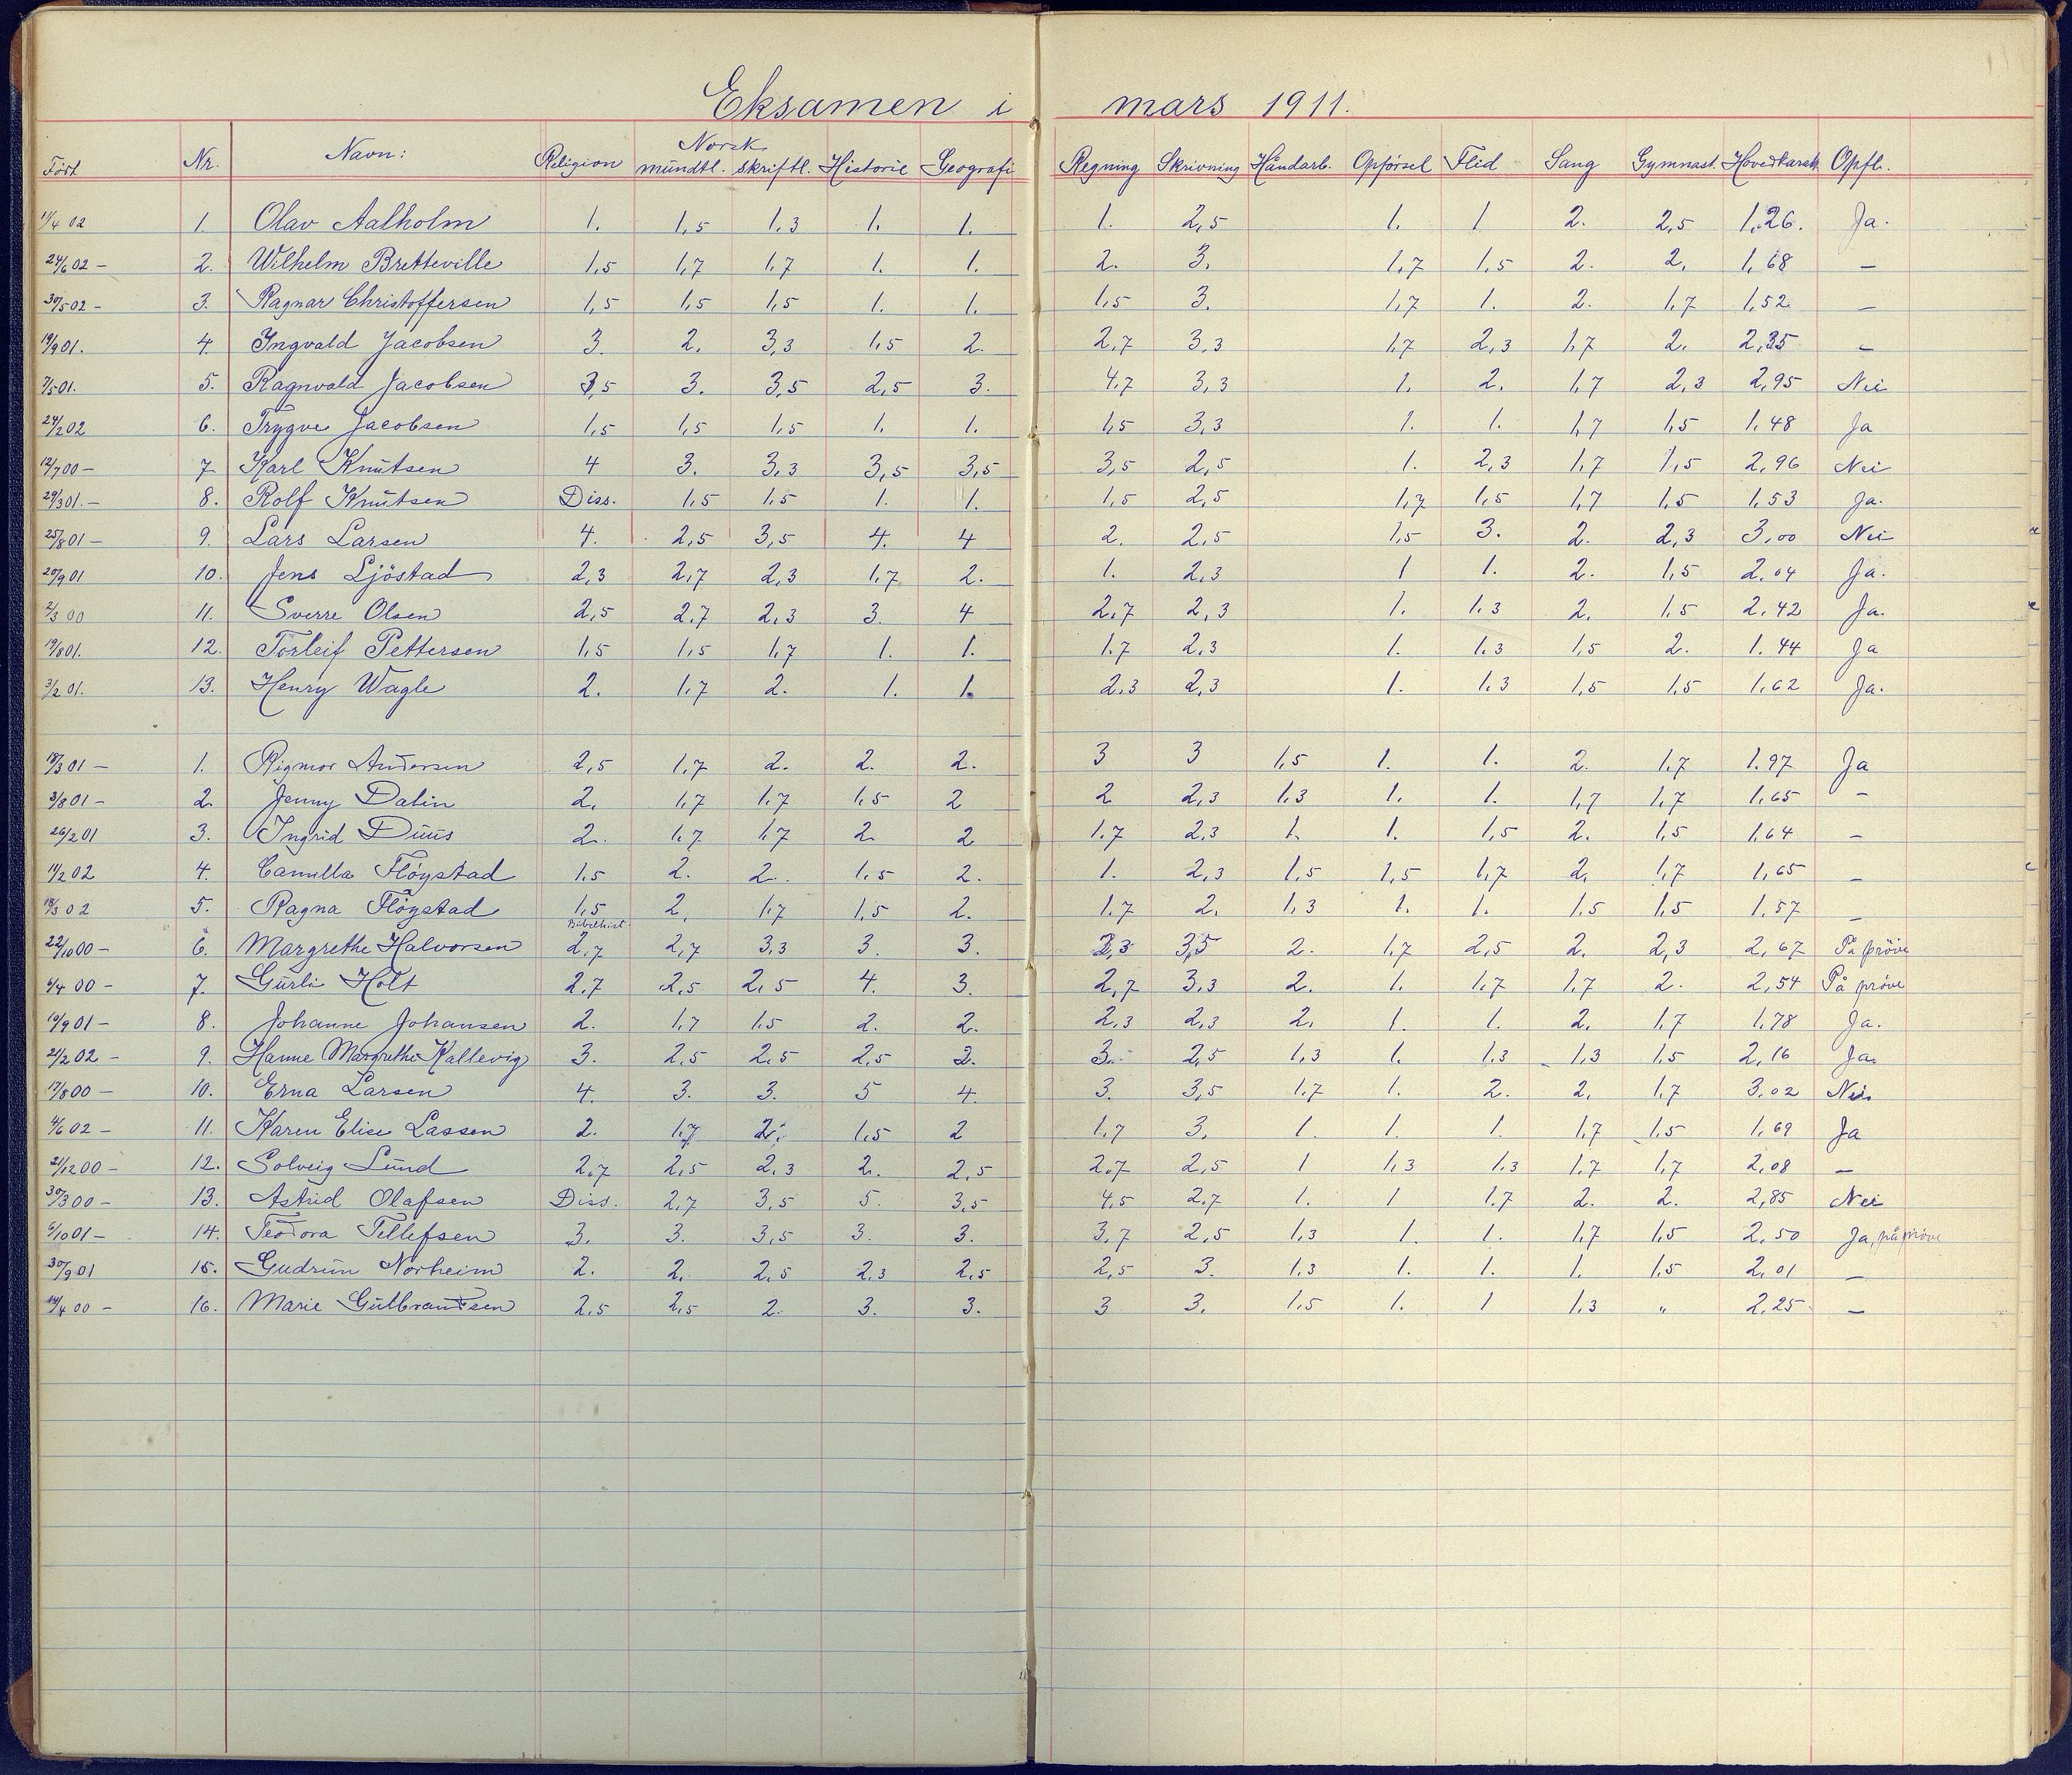 Eksamen i mars 1911.
Født Nr. Navn: Religion Norsk mundtl. skriftl. Historie Geografi Regning Skrivning Håndarb. Opførsel Flid Sang Gymnast. Hovedkarak. Opfl.
11/4 02 1. Olav Aalholm 1. 1,5 1,3 1. 1. 1. 2,5 1. 1 2. 2,5 1,26. Ja.
24/6 02 – 2. Wilhelm Bretteville 1,5 1,7 1,7 1. 1. 2. 3. 1,7 1,5 2. 2. 1,68 –
30/5 02 – 3. Ragnar Christoffersen 1,5 1,5 1,5 1. 1. 1,5 3. 1,7 1. 2. 1,7 1,52 –
19/9 01. 4. Ingvald Jacobsen 3. 2. 3,3 1,5 2. 2,7 3,3 1,7 2,3 1,7 2. 2,35 –
7/5 01. 5. Ragnvald Jacobsen 3,5 3. 3,5 2,5 3. 4,7 3,3 1. 2. 1,7 2,3 2,95 Nei
24/2 02 6. Trygve Jacobsen 1,5 1,5 1,5 1. 1. 1,5 3,3 1. 1. 1,7 1,5 1,48 Ja
12/7 00 – 7 Karl Knutsen 4 3. 3,3 3,5 3,5 3,5 2,5 1. 2,3 1,7 1,5 2,96 Nei
29/3 01. – 8. Rolf Knutsen Diss. 1,5 1,5 1. 1. 1,5 2,5 1,7 1,5 1,7 1,5 1,53 Ja.
25/8 01 – 9. Lars Larsen 4. 2,5 3,5 4. 4 2. 2,5 1,5 3. 2. 2,3 3,00 Nei
20/9 01 10. Jens Ljöstad 2,3 2,7 2,3 1,7 2. 1. 2,3 1 1. 2. 1,5 2,04 Ja.
2/3 00 11. Sverre Olsen 2,5 2,7 2,3 3. 4 2,7 2,3 1. 1,3 2. 1,5 2,42 Ja.
19/8 01. 12. Torleif Pettersen 1,5 1,5 1,7 1. 1. 1,7 2,3 1. 1,3 1,5 2. 1,44 Ja
3/2 01. 13. Henry Wagle 2. 1,7 2. 1. 1. 2,3 2,3 1. 1,3 1,5 1,5 1,62 Ja.
18/3 01 – 1. Rigmor Andersen 2,5 1,7 2. 2. 2. 3 3 1,5 1. 1. 2. 1,7 1.97 Ja
3/8 01 – 2. Jenny Dalin 2. 1,7 1,7 1,5 2 2 2,3 1,3 1. 1. 1,7 1,7 1,65 –
26/2 01 3. Ingrid Duus 2. 1,7 1,7 2. 2 1,7 2,3 1. 1. 1,5 2. 1,5 1,64 –
11/2 02 4. Camilla Flöystad 1,5 2. 2. 1,5 2. 1. 2,3 1,5 1,5 1,7 2. 1,7 1,65 –
18/3 02 5. Ragna Flöystad 1,5 2. 1,7 1,5 2. 1,7 2. 1,3 1. 1. 1,5 1,5 1,57 –
Bibelhist.
22/10 00 – 6. Margrethe Halvorsen 2,7 2,7 3,3 3. 3. 3,3 3,5 2. 1,7 2,5 2. 2,3 2,67 På pröve
6/4 00 – 7. Gurli Holt 2,7 2,5 2,5 4. 3. 2,7 3,3 2. 1. 1,7 1,7 2. 2,54 På pröve
19/9 01 – 8. Johanne Johansen 2. 1,7 1,5 2. 2. 2,3 2,3 2. 1. 1. 2. 1,7 1,78 Ja.
21/2 02 – 9. Hanne Margrethe Kallevig 3. 2,5 2,5 2,5 2. 3. 2,5 1,3 1. 1,3 1,3 1,5 2,16 Ja.
17/8 00 – 10. Erna Larsen 4. 3. 3. 5 4. 3. 3,5 1,7 1. 2. 2. 1,7 3,02 Nei
4/6 02 – 11. Karen Elise Lassen 2. 1,7 2. 1,5 2 1,7 3. 1. 1. 1. 1,7 1,5 1,69 Ja
21/12 00 – 12. Solveig Lund 2,7 2,5 2,3 2. 2,5 2,7 2,5 1 1,3 1,3 1,7 1,7 2,08 –
30/3 00 – 13. Astrid Olafsen Diss. 2,7 3,5 5. 3,5 4,5 2,7 1. 1 1,7 2. 2. 2,85 Nei
6/10 01 – 14. Teodora Tellefsen 3. 3. 3,5 3. 3. 3,7 2,5 1,3 1. 1. 1,7 1,5 2,50 Ja, på pröve
30/9 01 15. Gudrun Norheim 2. 2. 2,5 2,3 2,5 2,5 3. 1,3 1. 1. 1. 1,5 2,01 –
14/4 00 – 16. Marie Gulbrandsen 2,5 2,5 2. 3. 3. 3 3. 1,5 1. 1 1,3 " 2,25 –